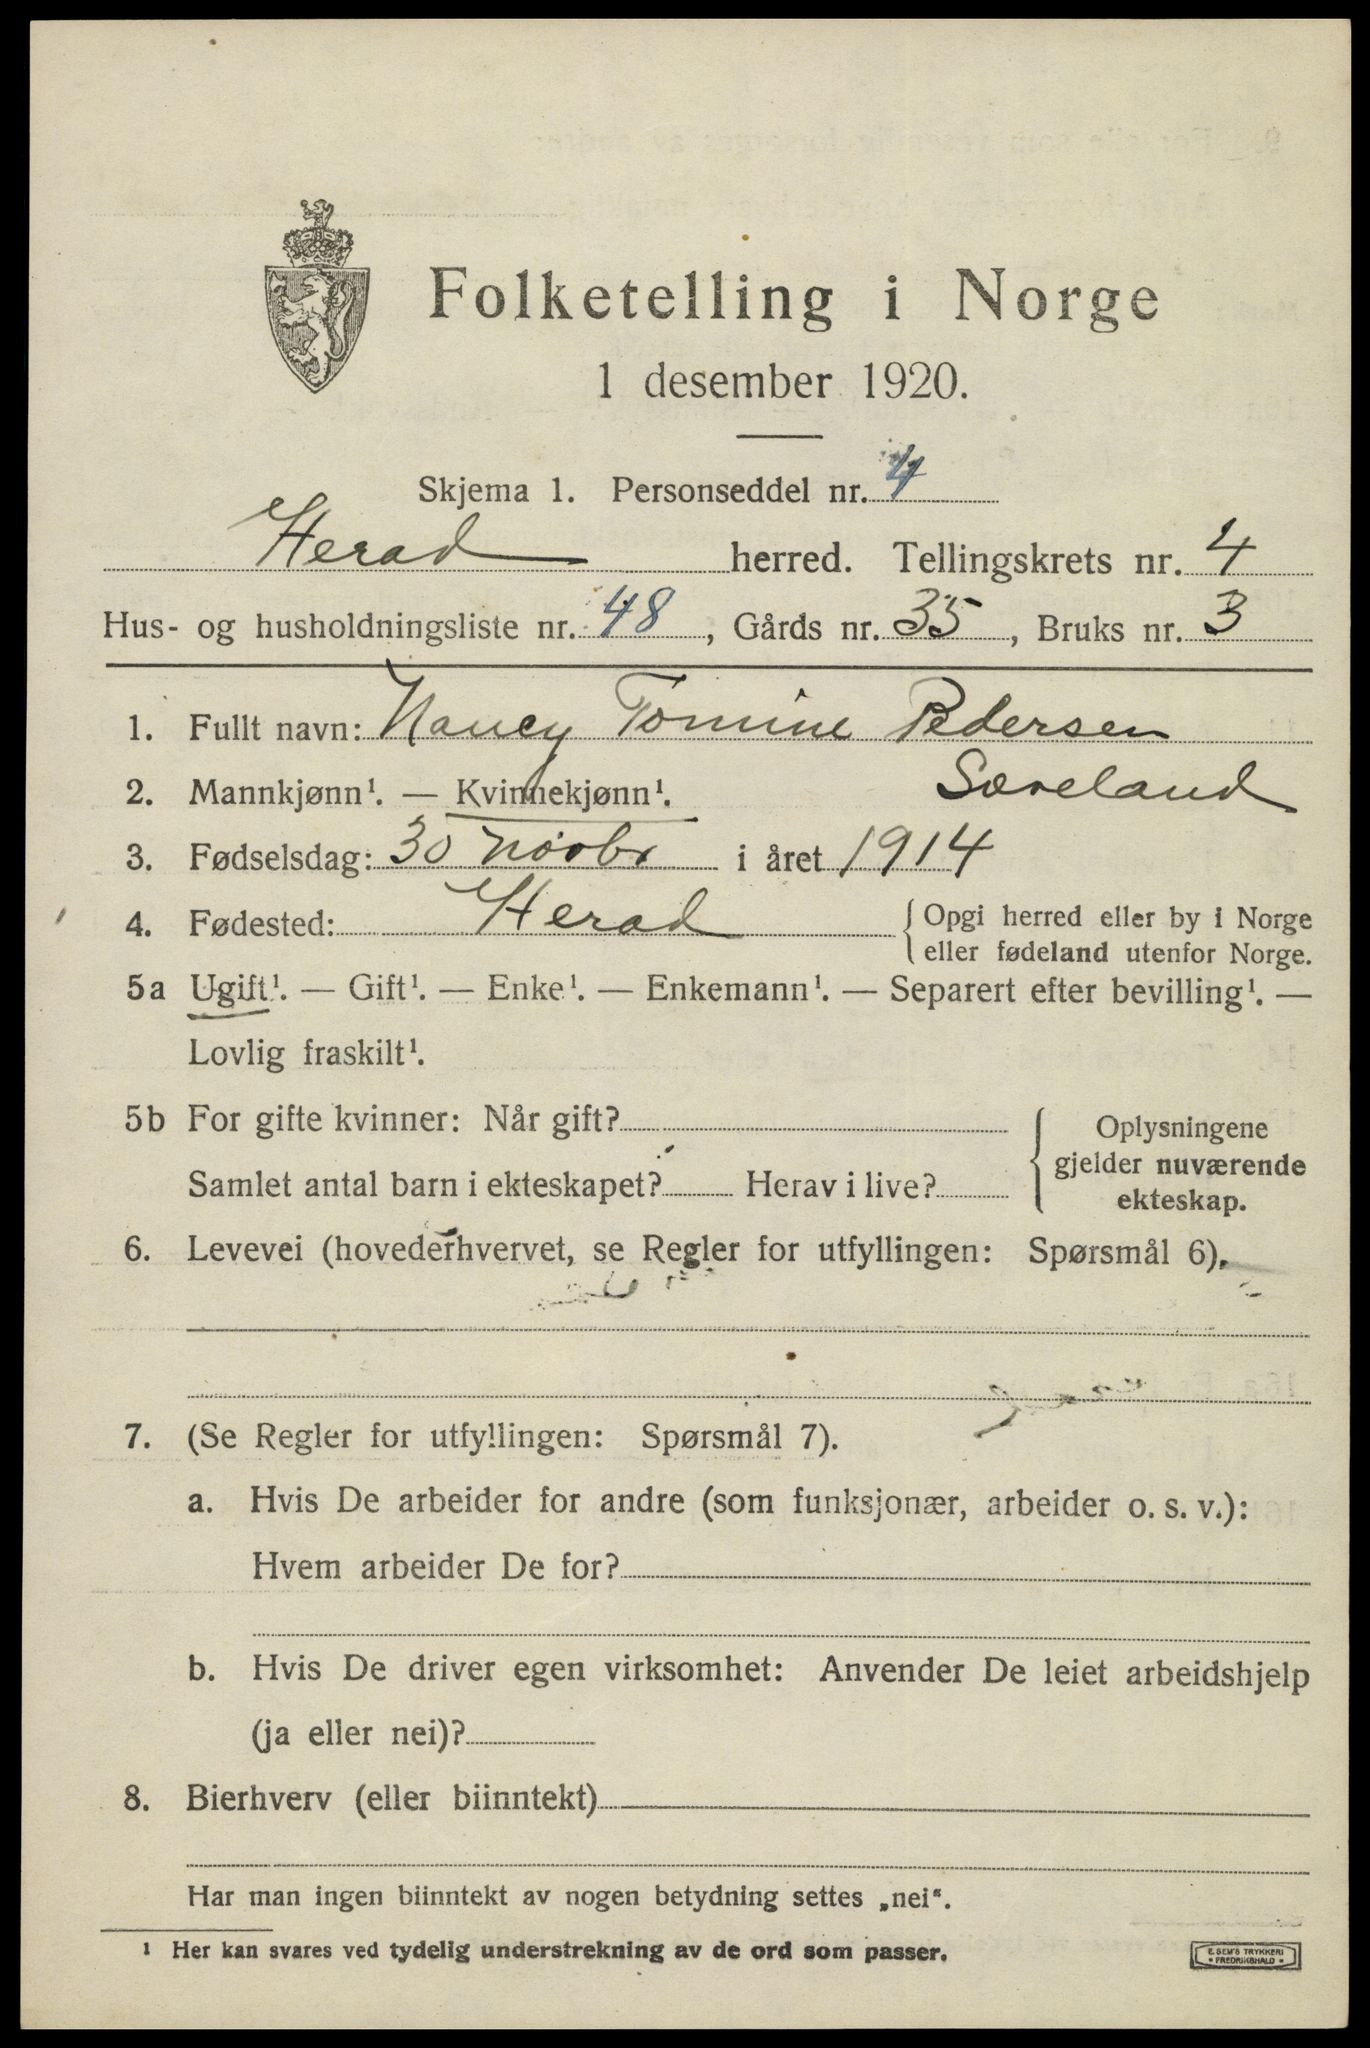 Folketelling i Norge
1 desember 1920.
Skjema 1. Personseddel nr. 4
Herad herred. Tellingskrets nr. 4
Hus- og husholdningsliste nr. 48, Gårds nr. 35, Bruks nr. 3
1. Fullt navn: Nancy Tomine Pedersen
Sæveland
2. Mannkjønn¹. — Kvinnekjønn¹.
3. Fødselsdag: 30 novbr i året 1914
4. Fødested: Herad { Opgi herred eller by i Norge
eller fødeland utenfor Norge.
5a Ugift¹. — Gift¹. — Enke¹. — Enkemann¹. — Separert efter bevilling¹. —
Lovlig fraskilt¹.
5b For gifte kvinner: Når gift?
Samlet antal barn i ekteskapet? Herav i live?
{ Oplysningene
gjelder nuværende
ekteskap.
6. Levevei (hovederhvervet, se Regler for utfyllingen: Spørsmål 6).
7. (Se Regler for utfyllingen: Spørsmål 7).
a. Hvis De arbeider for andre (som funksjonær, arbeider o. s. v.):
Hvem arbeider De for?
b. Hvis De driver egen virksomhet: Anvender De leiet arbeidshjelp
(ja eller nei)?
8. Bierhverv (eller biinntekt)
Har man ingen biinntekt av nogen betydning settes „nei“.
¹ Her kan svares ved tydelig understrekning av de ord som passer.
E. SEM'S TRYKKERI
* FREDRIKSHALD *